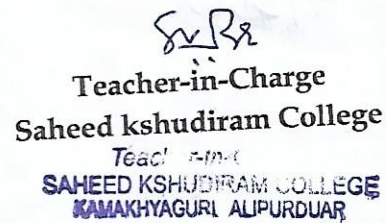 Teacher-in-Charge
Saheed kshudiram College
SAHEED KSHUDIRAM COLLEGE
KAMAKHYAGURI, ALIPURDUAR